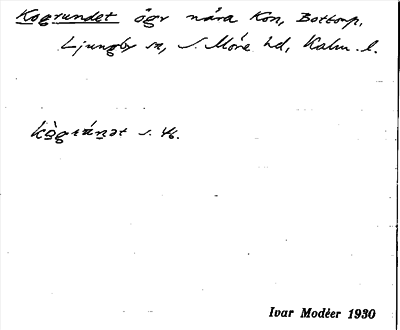 Kogrundet ögr nära Kon, Bottorp,
Ljungby sn, S. Möre hd, Kalm. l.
s. 4.
Ivar Modéer 1930